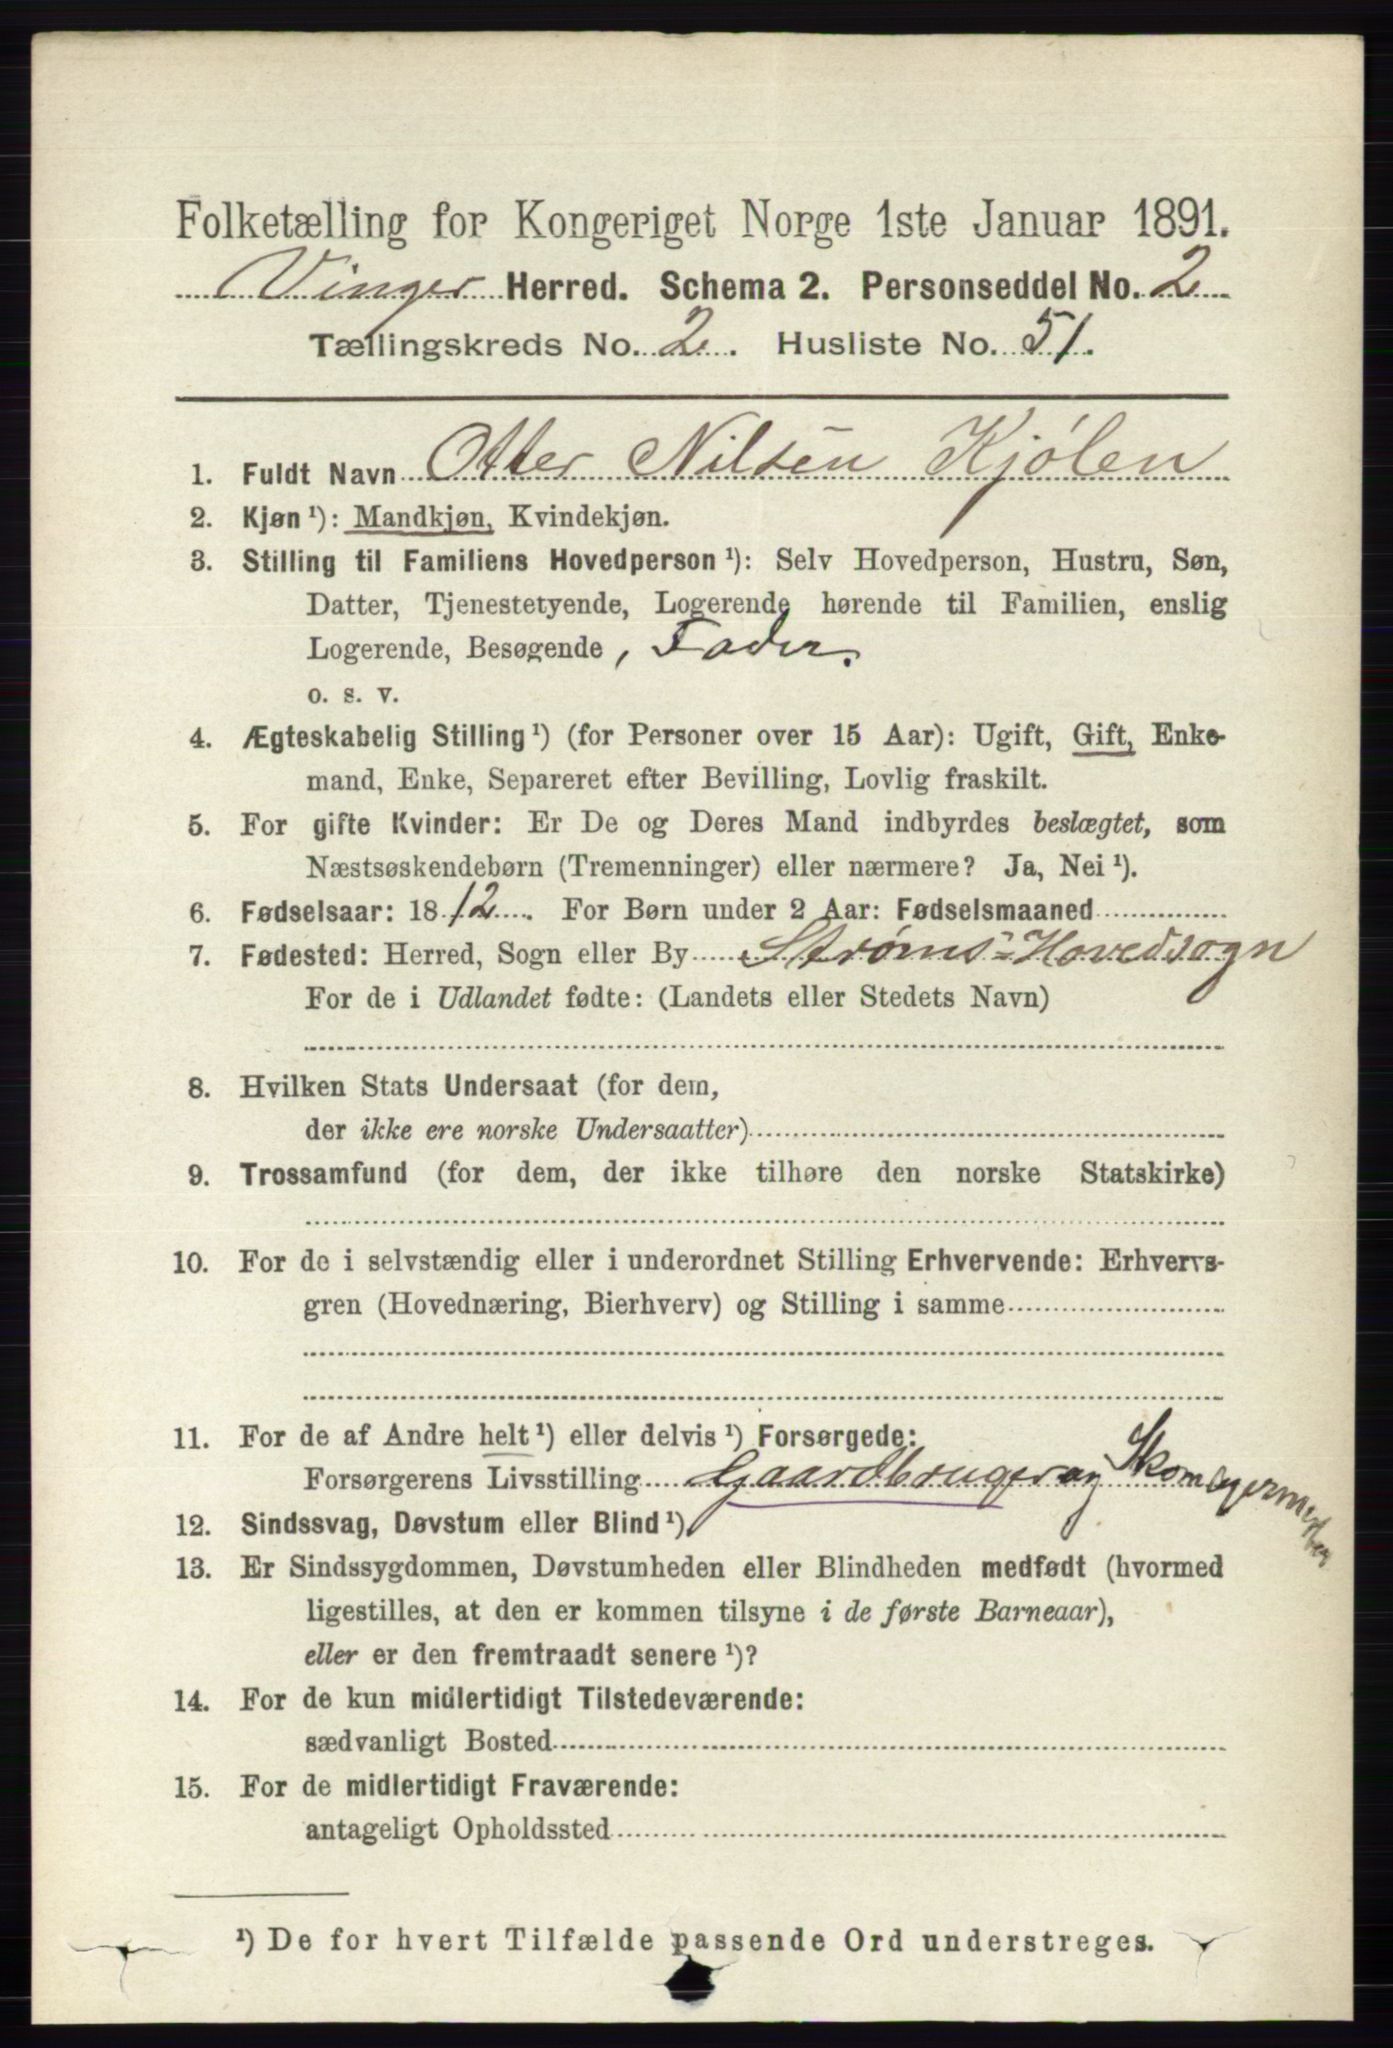 Folketælling for Kongeriget Norge 1ste Januar 1891.
Vinger Herred. Schema 2. Personseddel No. 2
Tællingskreds No. 2. Husliste No. 51.
1. Fuldt Navn Otter Nilsen Kjølen
2. Kjøn ¹): Mandkjøn, Kvindekjøn.
3. Stilling til Familiens Hovedperson ¹): Selv Hovedperson, Hustru, Søn,
Datter, Tjenestetyende, Logerende hørende til Familien, enslig
Logerende, Besøgende, Fader.
o. s. v.
4. Ægteskabelig Stilling ¹) (for Personer over 15 Aar): Ugift, Gift, Enke-
mand, Enke, Separeret efter Bevilling, Lovlig fraskilt.
5. For gifte Kvinder: Er De og Deres Mand indbyrdes beslægtet, som
Næstsøskendebørn (Tremenninger) eller nærmere? Ja, Nei ¹).
6. Fødselsaar: 1812. For Børn under 2 Aar: Fødselsmaaned
7. Fødested: Herred, Sogn eller By Strøms-Hovedsogn
For de i Udlandet fødte: (Landets eller Stedets Navn)
8. Hvilken Stats Undersaat (for dem,
der ikke ere norske Undersaatter)
9. Trossamfund (for dem, der ikke tilhøre den norske Statskirke)
10. For de i selvstændig eller i underordnet Stilling Erhvervende: Erhvervs-
gren (Hovednæring, Bierhverv) og Stilling i samme
11. For de af Andre helt ¹) eller delvis ¹) Forsørgede:
Forsørgerens Livsstilling Gaardbruger og Skomagermester
12. Sindssvag, Døvstum eller Blind ¹).
13. Er Sindssygdommen, Døvstumheden eller Blindheden medfødt (hvormed
ligestilles, at den er kommen tilsyne i de første Barneaar),
eller er den fremtraadt senere ¹)?
14. For de kun midlertidigt Tilstedeværende:
sædvanligt Bosted
15. For de midlertidigt Fraværende:
antageligt Opholdssted
¹) De for hvert Tilfælde passende Ord understreges.